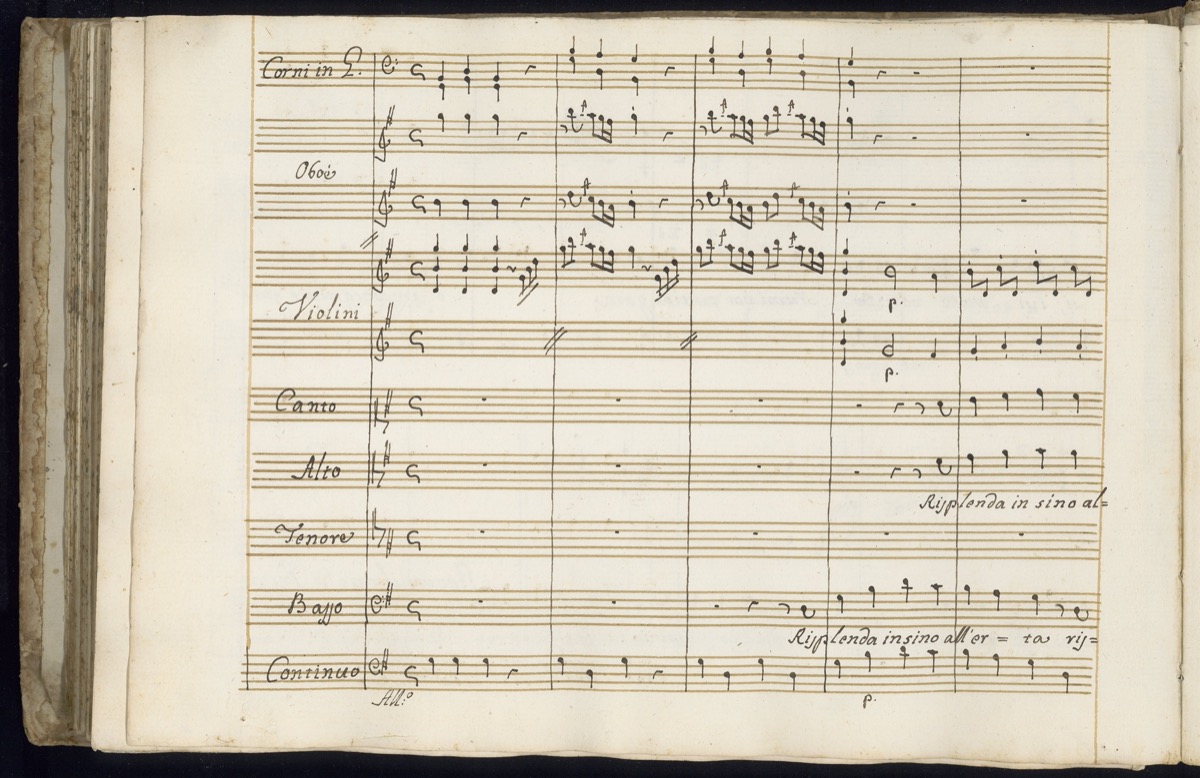 Corni in G.
Oboè
Violini
p.
p.
Canto
Alto
Risplenda in sino al=
Tenore
Basso
Risplenda in sino all'er = ta ris=
Continuo
All.º
p.